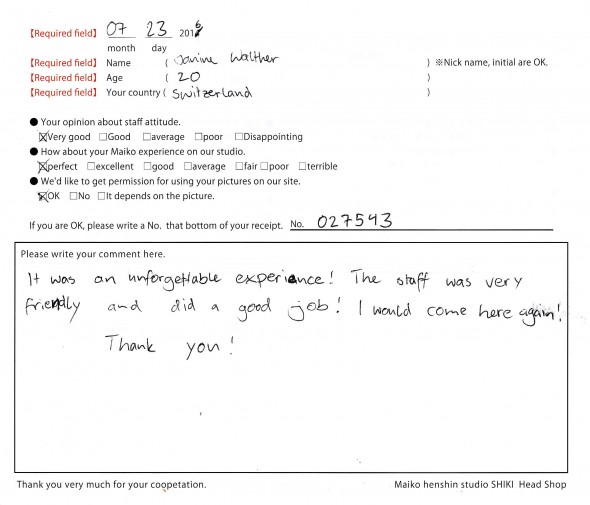 【Required field】 07 23 2016
month day
【Required field】 Name ( Janine Walther ) ※Nick name, initial are OK.
【Required field】 Age ( 20 )
【Required field】 Your country ( Switzerland )
● Your opinion about staff attitude.
☒Very good ☐Good ☐average ☐poor ☐Disappointing
● How about your Maiko experience on our studio.
☒perfect ☐excellent ☐good ☐average ☐fair ☐poor ☐terrible
● We'd like to get permission for using your pictures on our site.
☒OK ☐No ☐It depends on the picture.
If you are OK, please write a No. that bottom of your receipt. No. 027543
Please write your comment here.
It was an unforgettable experience! The staff was very
friendly and did a good job! I would come here again!
Thank you!
Thank you very much for your coopetation. Maiko henshin studio SHIKI Head Shop